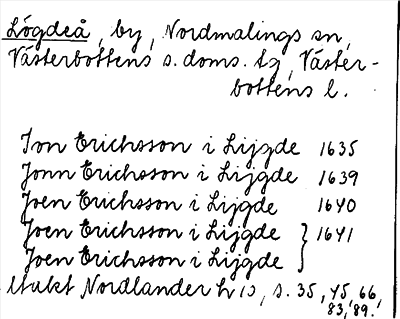 Lögdeå, by, Nordmalings sn,
Västerbottens s. doms. tg, Väster-
bottens l.
Jon Erichsson i Lijgde 1635
Jonn Erichsson i Lijgde 1639
Joen Erichsson i Lijgde 1640
Joen Erichsson i Lijgde } 1641
Joen Erichsson i Lijgde
Mukt Nordlander h 13, s. 35, 45, 66,
83, 89.